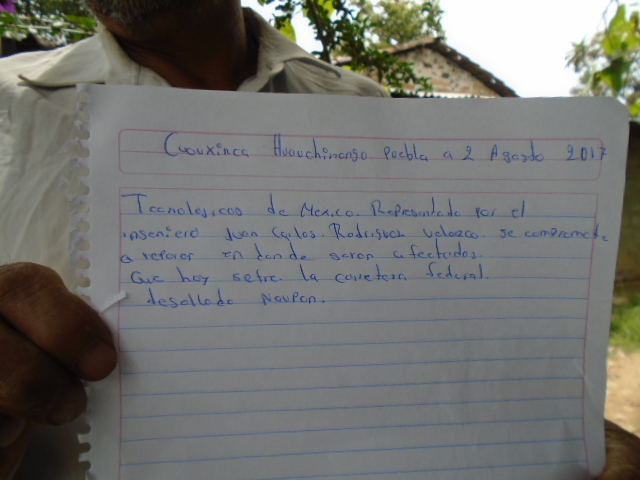 Cuauxinca Huauchinango Puebla a 2 Agosto 2017
Tecnologicos de Mexico. Representado por el
ingeniero Juan Carlos. Rodriguez Velazco. se compromete
a reparar en donde seran afectados.
Que hay sobre la carretera federal.
desollado Naupan.